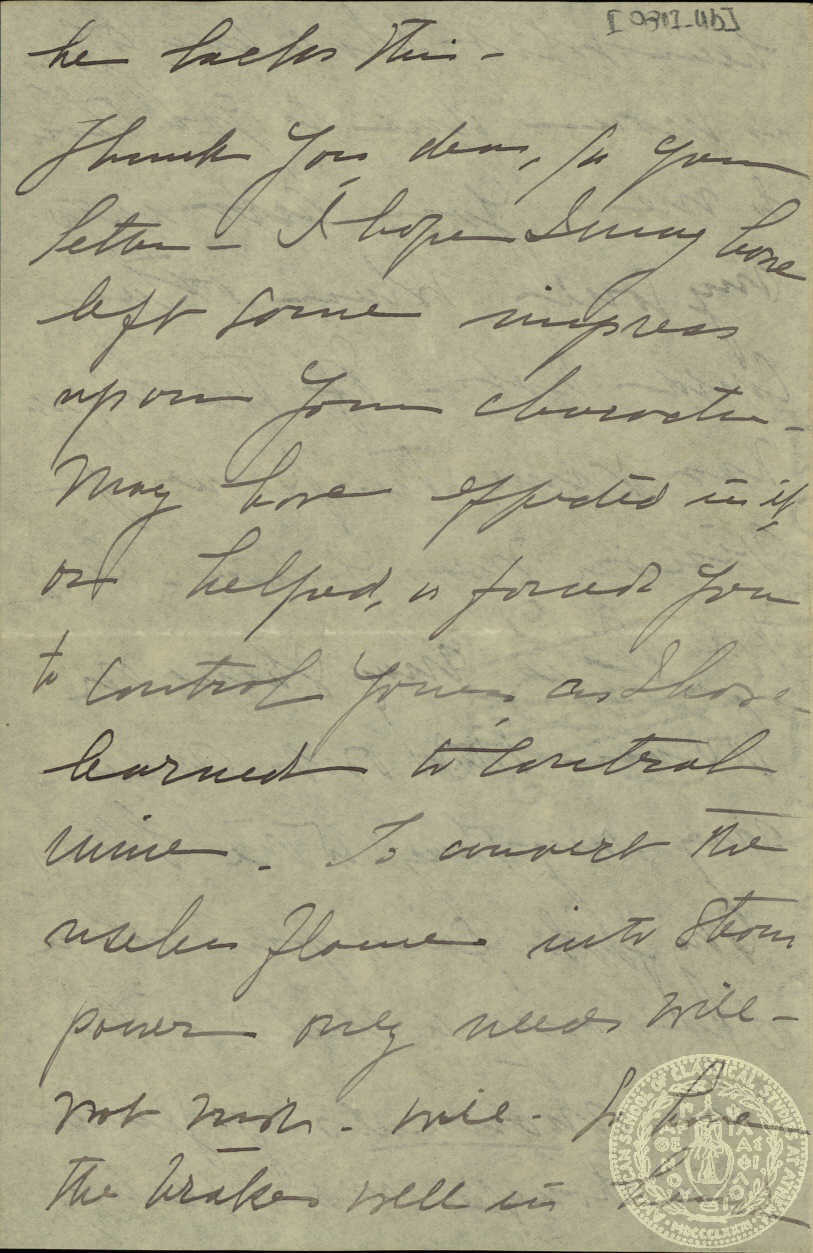 he lacks this -
Thank you, dear, for your
letter - I hope I may have
left some impress
upon your character -
May have effected in it
or helped, or forced you
to control yours, as I have
learned to control
mine. To convert the
useless flame into steam
power only needs will -
not wish - will - to have
the brakes well in hand
AMERICAN SCHOOL OF CLASSICAL STUDIES AT ATHENS
MDCCCLXXXI